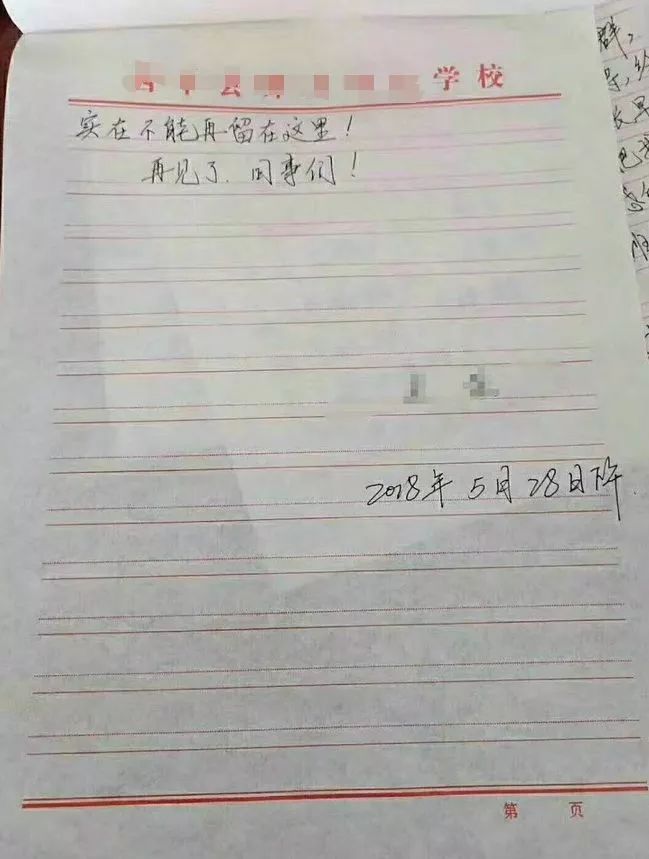 学校
实在不能再留在这里！
再见了．同事们！
2018年 5月 28日下午.
第 页